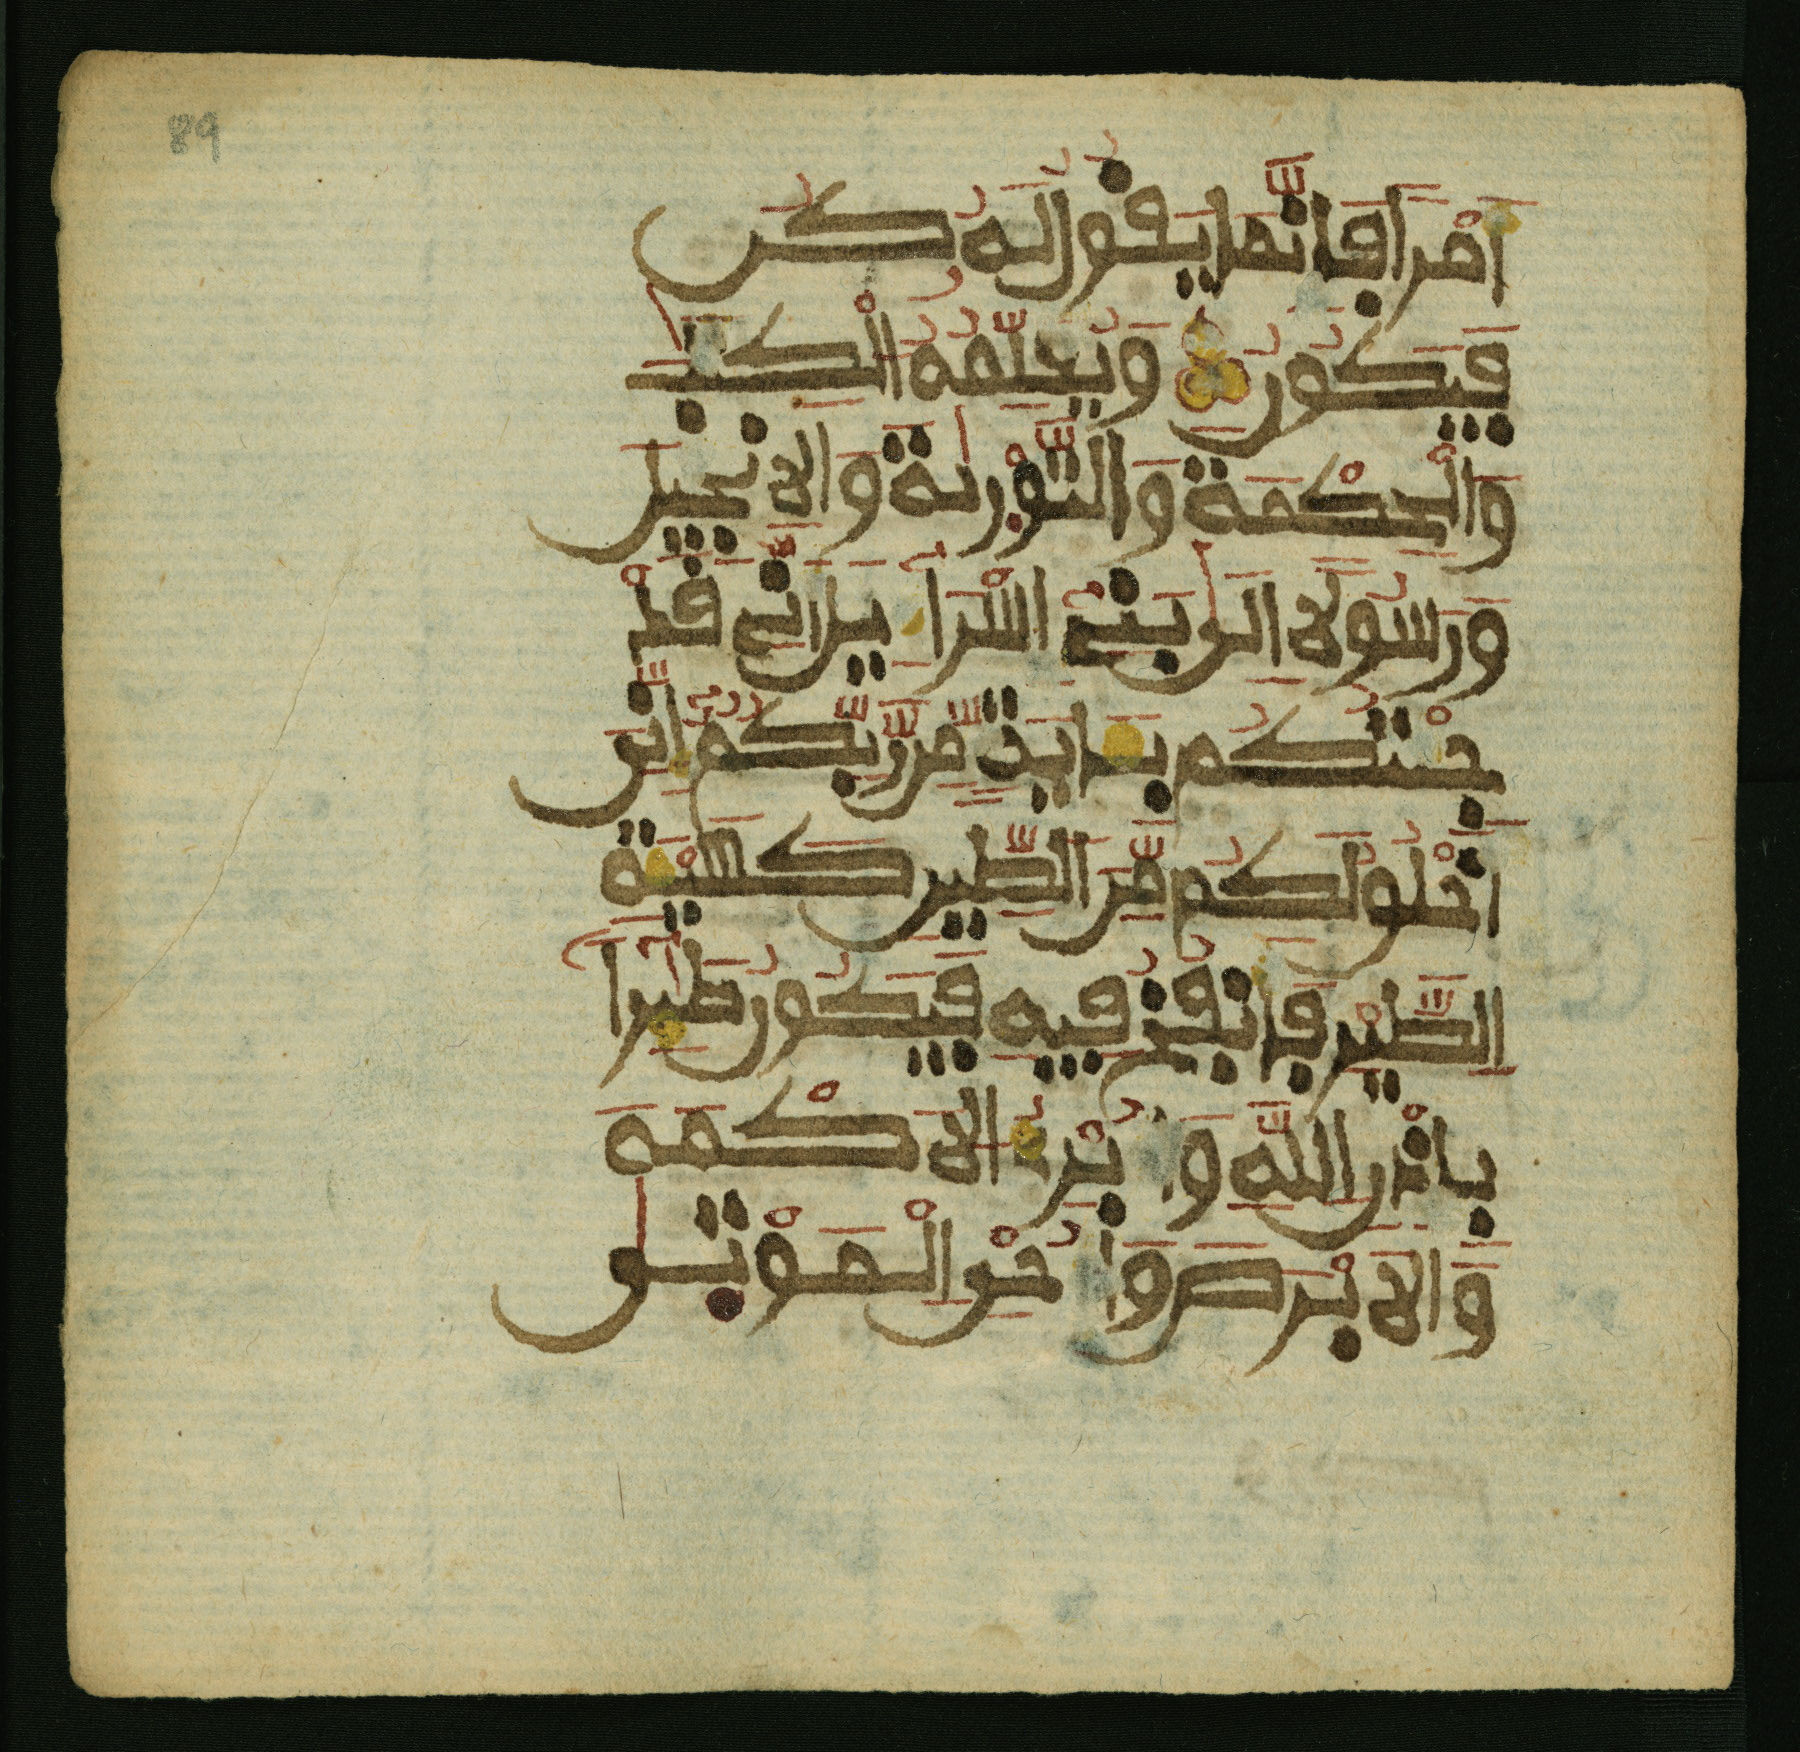 89
أَمْراً فَإِنَّمَا يَقُولُ لَهُ كُن
فَيَكُونُ وَيُعَلِّمُهُ الْكِتَٰبَ
وَالْحِكْمَةَ وَالتَّوْرَىٰةَ وَالِانجِيلَ
وَرَسُولاً اِلَىٰ بَنِےٓ إِسْرَآءِيلَ أَنِّے قَدْ
جِئْتُكُم بِـَٔايَةٍ مِّن رَّبِّكُمُۥٓ إِنِّىَ
أَخْلُقُ لَكُم مِّنَ الطِّينِ كَهَيْـَٔةِ
الطَّيْرِ فَأَنفُخُ فِيهِ فَيَكُونُ طَٰٓئِراً
بِإِذْنِ اللَّهِ وَأُبْرِئُ الَاكْمَهَ
وَالَابْرَصَ وَأُحْىِ الْمَوْتَىٰ